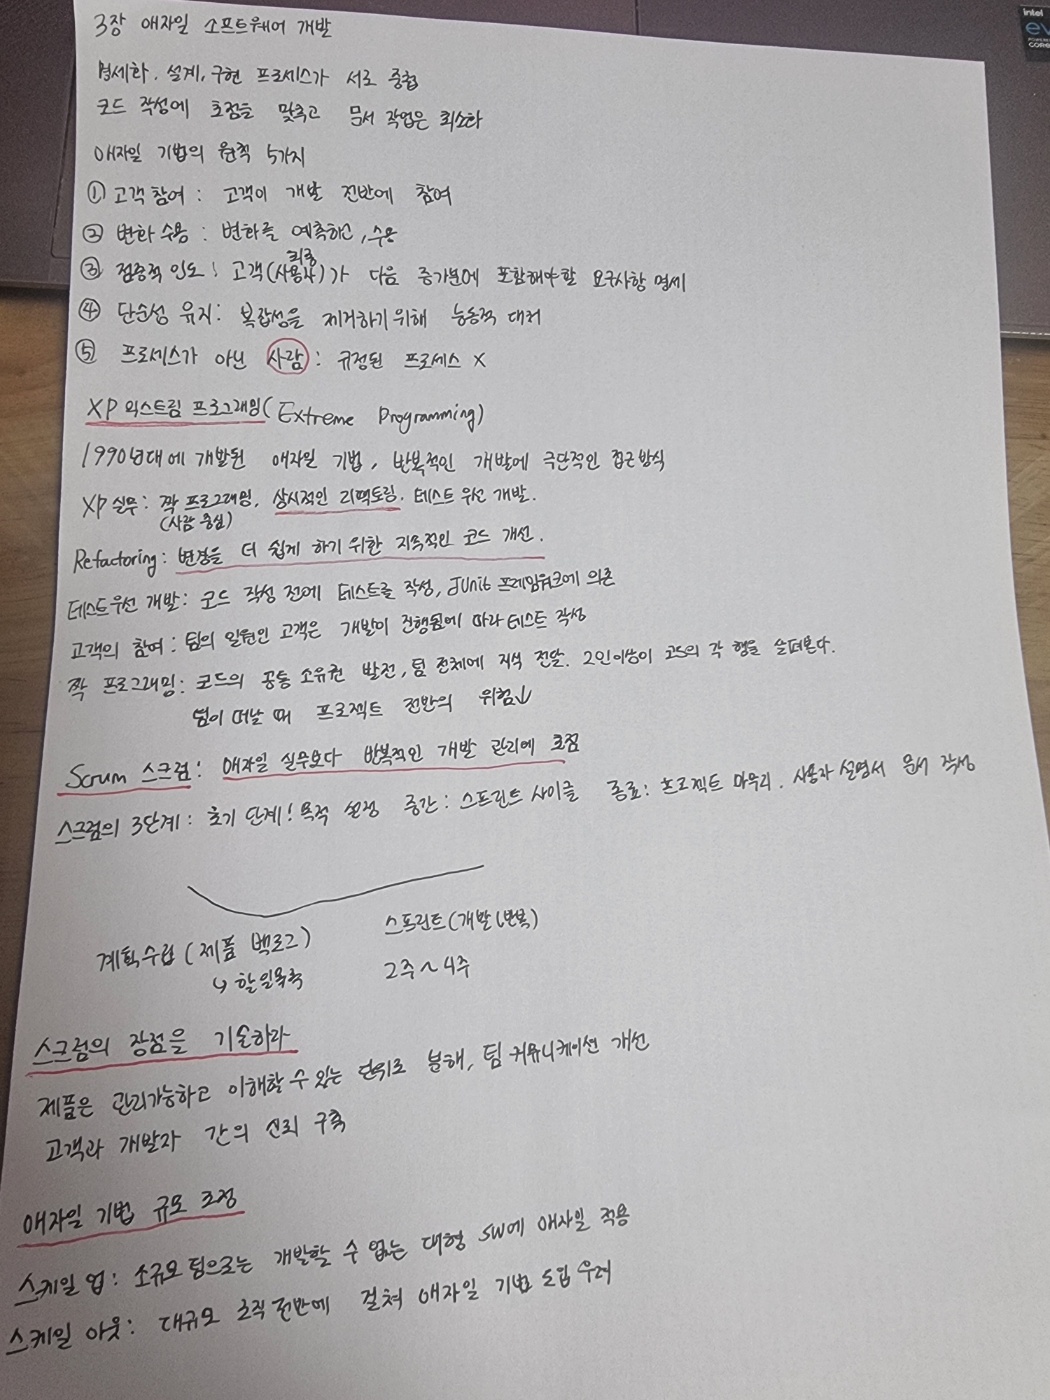 3장 애자일 소프트웨어 개발
명세화, 설계, 구현 프로세스가 서로 중첩
코드 작성에 초점을 맞추고 문서 작업은 최소화
애자일 기법의 원칙 5가지
① 고객 참여 : 고객이 개발 전반에 참여
② 변화 수용 : 변화를 예측하고, 수용
③ 점증적 인도 : 고객(사용자)가 다음 증가분에 포함해야할 요구사항 명세
④ 단순성 유지 : 복잡성을 제거하기위해 능동적 대처
⑤ 프로세스가 아닌 사람 : 규정된 프로세스 X
XP 익스트림 프로그래밍(Extreme Programming)
1990년대에 개발된 애자일 기법, 반복적인 개발에 극단적인 접근방식
XP 실무 : 짝 프로그래밍, 상시적인 리팩토링, 테스트 우선 개발.
(사람 중심)
Refactoring : 변경을 더 쉽게 하기 위한 지속적인 코드 개선.
테스트우선 개발 : 코드 작성 전에 테스트를 작성, JUnit 프레임워크에 의존
고객의 참여 : 팀의 일원인 고객은 개발이 진행됨에 따라 테스트 작성
짝 프로그래밍 : 코드의 공동 소유권 발전, 팀 전체에 지식 전달. 2인이상이 코드의 각 행을 살펴본다.
팀이 떠날 때 프로젝트 전반의 위험↓
Scrum 스크럼 : 애자일 실무보다 반복적인 개발 관리에 초점
스크럼의 3단계 : 초기 단계 : 목적 설정 중간 : 스프린트 사이클 종료 : 프로젝트 마무리. 사용자 설명서 문서 작성
계획수립 (제품 백로그) 스프린트(개발(반복)
↳ 할일목록 2주~4주
스크럼의 장점을 기술하라
제품은 관리가능하고 이해할 수 있는 단위로 분해, 팀 커뮤니케이션 개선
고객과 개발자 간의 신뢰 구축
애자일 기법 규모 조정
스케일 업 : 소규모 팀으로는 개발할 수 없는 대형 SW에 애자일 적용
스케일 아웃 : 대규모 조직 전반에 걸쳐 애자일 기법 도입
intel